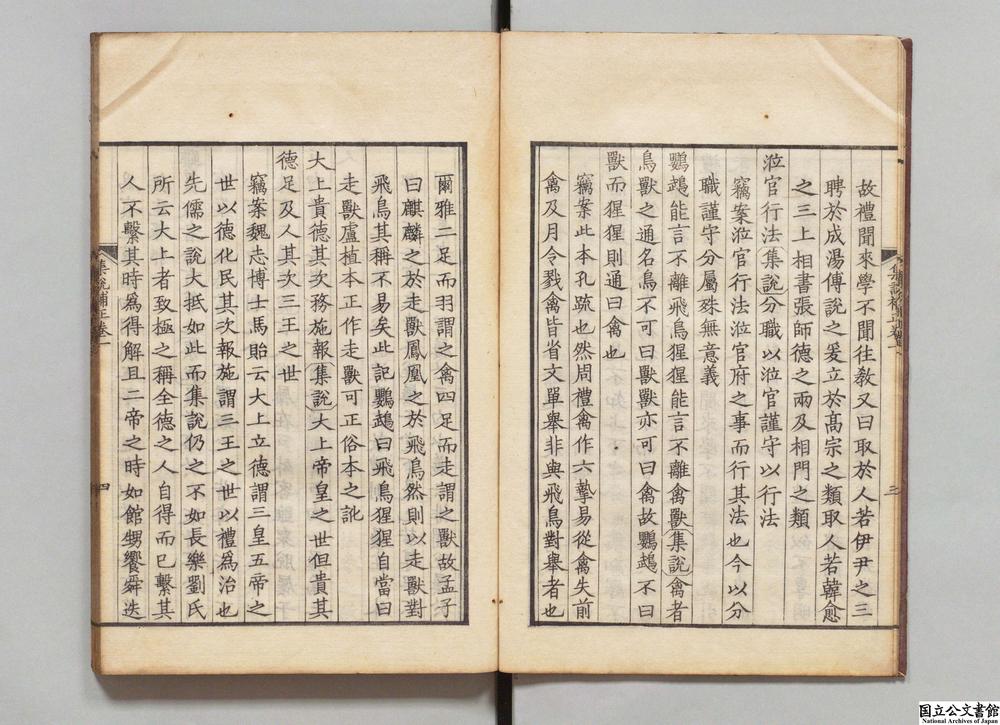 故禮聞來學不聞往教又曰取於人若伊尹之三
聘於成湯傅說之爰立於髙宗之類取人若韓愈
之三上相書張師德之兩及相門之類
涖官行法集說分職以涖官謹守以行法
竊案涖官行法涖官府之事而行其法也今以分
職謹守分屬殊無意義
鸚鵡能言不離飛鳥猩猩能言不離禽獸集說禽者
鳥獸之通名鳥不可曰獸獸亦可曰禽故鸚鵡不曰
獸而猩猩則通曰禽也
竊案此本孔疏也然周禮禽作六摯易從禽失前
禽及月令戮禽皆省文單舉非與飛鳥對舉者也
集說補正卷一
三
爾雅二足而羽謂之禽四足而走謂之獸故孟子
曰麒麟之於走獸鳳凰之於飛鳥然則以走獸對
飛鳥其稱不易矣此記鸚鵡曰飛鳥猩猩自當曰
走獸盧植本正作走獸可正俗本之訛
大上貴德其次務施報集說大上帝皇之世但貴其
德足及人其次三王之世
竊案魏志博士馬貽云大上立德謂三皇五帝之
世以德化民其次報施謂三王之世以禮為治也
先儒之說大抵如此而集說仍之不如長樂劉氏
所云大上者致極之稱全德之人自得而已繫其
人不繫其時為得解且二帝之時如館甥饗舜迭
集說補正卷一
四
国立公文書館
National Archives of Japan